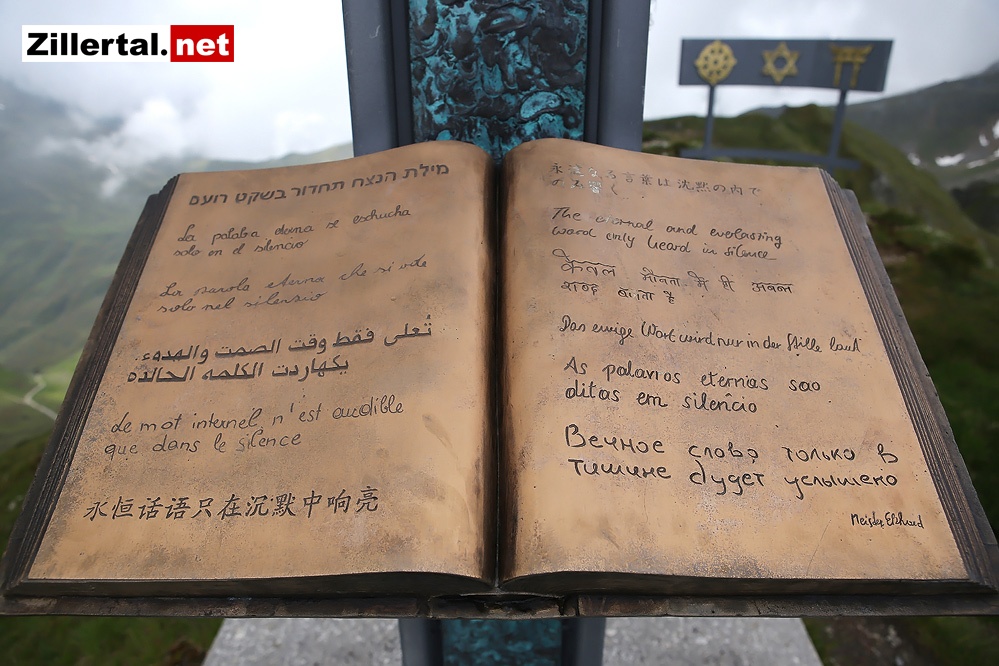 Zillertal.net
מילת הנצח תחדור בשקט רועם
La palabra eterna se eschucha
solo en el silencio
La parola eterna che si ode
solo nel silenzio
تُعلى فقط وقت الصمت والهدوء.
الكلمه الخالده
Le mot internel n'est audible
que dans le silence
永恒话语只在沉默中响亮
永遠なる言葉は沈黙の内で
The eternal and everlasting
word only heard in silence
केवल में ही
शब्द है
Das ewige Wort wird nur in der Stille laut
As palavras eternas sao
ditas em silencio
Вечное слово только в
тишине будет услышено
Meister Ekkhard